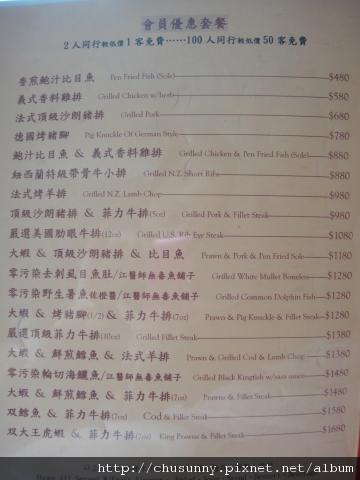 會員優惠套餐
2人同行較低價1客免費……100人同行較低價50客免費
香煎鮑汁比目魚 Pen Fried Fish (Sole) $480
義式香料雞排 Grilled Chicken w/herb $580
法式頂級沙朗豬排 Grilled Pork $680
德國烤豬腳 Pig Knuckle Of German Style $780
鮑汁比目魚 & 義式香料雞排 Grilled Chicken & Pen Fried Fish (Sole) $880
紐西蘭特級帶骨牛小排 Grilled N.Z. Short Ribs $880
法式烤羊排 Grilled N.Z. Lamb Chop $980
頂級沙朗豬排 & 菲力牛排(5oz) Grilled Pork & Fillet Steak $980
嚴選美國肋眼牛排(12oz) Grilled U.S. Rib Eye Steak $1080
大蝦 & 頂級沙朗豬排 & 比目魚 Prawn & Pork & Pen Fried Sole $1180
零污染去刺虱目魚肚/江醫師無毒魚舖子 Grilled White Mullet Boneless $1280
零污染野生暑魚佐橙醬/江醫師無毒魚舖子 Grilled Common Dolphin Fish $1280
大蝦 & 烤豬腳(1/2) & 菲力牛排(7oz) Prawn & Pig Knuckle & Fillet Steak $1280
嚴選頂級菲力牛排(10oz) Grilled Fillet Steak $1380
大蝦 & 鮮煎鱈魚 & 法式羊排 Prawn & Grilled Cod & Lamb Chop $1380
零污染輪切海鱺魚/江醫師無毒魚舖子 Grilled Black Kingfish w/sasa sauce $1480
大蝦 & 鮮煎鱈魚 & 菲力牛排(7oz) Prawns & Fillet Steak $1480
双鱈魚 & 菲力牛排(7oz) Cod & Fillet Steak $1580
双大王虎蝦 & 菲力牛排(7oz) King Prawns & Fillet Steak $1680
http://chusunny.pixnet.net/album